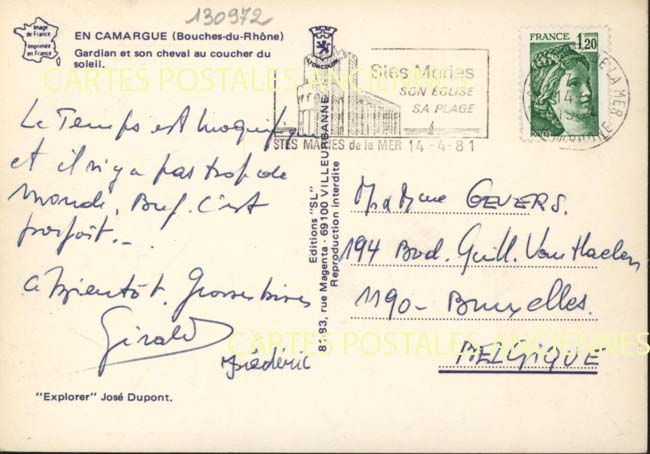 130972
Image
de France
Imprimée
en France
EN CAMARGUE (Bouches-du-Rhône)
Gardian et son cheval au coucher du
soleil.
CARTES POSTALES ANCIENNES
Le Temps est magnifique
et il n'y a pas trop de
monde, Bref. c'est
parfait...
A bientôt. Grosses bises
Girald
Frédéric
"Explorer" José Dupont.
Editions "SL"
81-83, rue Magenta - 69100 VILLEURBANNE
Reproduction interdite
Stes Maries
SON ÉGLISE
SA PLAGE
STES MARIES de la MER 14-4-81
FRANCE 1,20
DE LA MER
14
Madame GEVERS.
194 Bvd. Guill. Van Haelen
1190 - Bruxelles.
BELGIQUE
CARTES POSTALES ANCIENNES